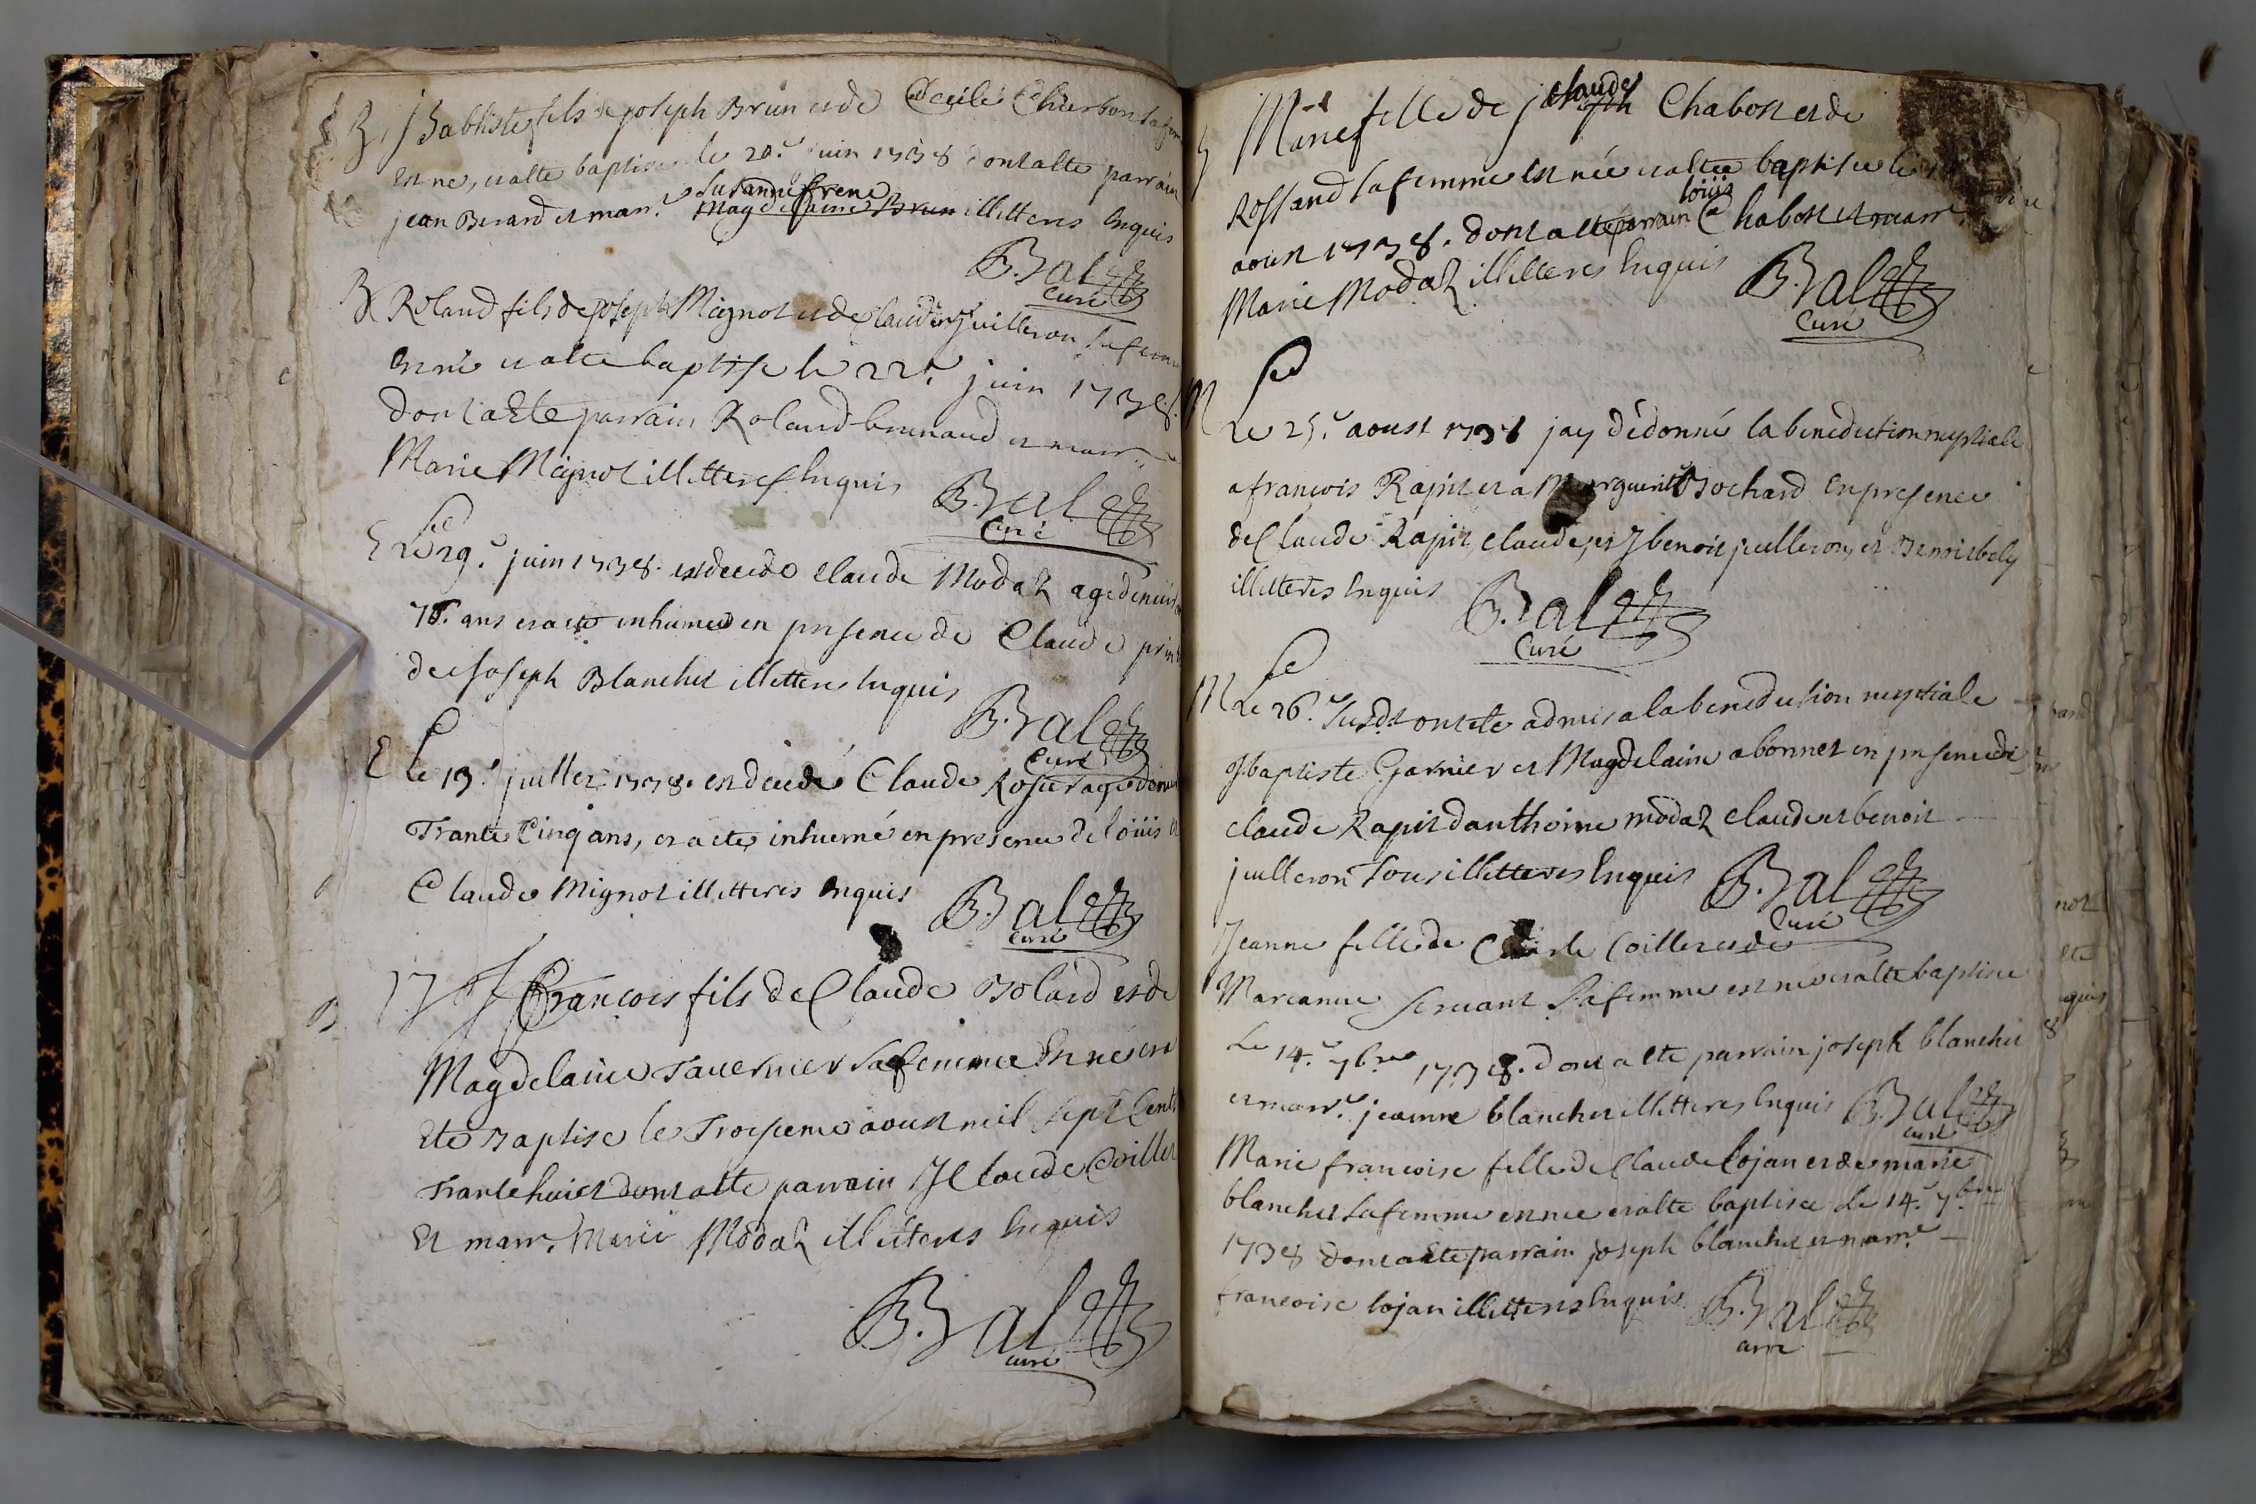 B J Babtiste fils de joseph Brun et de Cecile Cherbon sa
Est né, et a été baptise le 20.e juin 1738 dont a été parrain
Susanne frene
jean Berard et marr.e Magdelaine Brun illitteres Enquis
B. Bal
Curé
B Roland fils de joseph Mignot et de Claudine juilleron sa femme
Est né et a été baptise le 22.e juin 1738.
Dont a Eté parrain Roland brunaud et marr.e
Marie Mignot illitteres Enquis
B. Bal
Curé
E Le 29.e juin 1738. est decedé Claude Modaz agé denviron
78. ans et a eté inhumé en presence de Claude
de joseph Blanchet illitteres Enquis
B. Bal
Curé
E Le 13.e juillet 1738. est decedé Claude Rosset agé denviron
Trante Cinq ans, et a eté inhumé en presence de loüis et
Claude Mignot illitteres Enquis
B. Bal
Curé
B françois fils de Claude Bolard et de
Magdelaine Tavernier sa femme Est né et a
Eté Baptise le Troisieme aoust mil sept Cents
Trante huict dont a été parrain J Claude Coillet
Et marr. Marie Modaz illitteres Enquis
B. Bal
curé
claude
Marie fille de joseph Chabost et de
Rossand sa femme est née et a été baptisee le
loüis
aoust 1738. dont a été parrain Chabost et marr.e
Marie Modaz illitteres Enquis
B. Bal
Curé
M Le 25.e aoust 1738 jay dédonné la benediction nuptiale
a françois Rapit et a Marguerite Bochard En presence
de Claude Rapit, claude, et J benoit juilleron, et Benoit bely
illitteres Enquis
B. Bal
Curé
M Le 26.e Susdt ont eté admis a la benediction nuptiale
J baptiste Garnier et Magdelaine abonnet en presence de
claude Rapit danthoine modaz claude et benoit
juilleron Tous illitteres Enquis
B. Bal
Curé
Jeanne fille de Coillet et de
Marianne servant sa femme est née et a été baptisee
Le 14.e 7bre 1738. dont a été parrain joseph blanchet
et marr.e jeanne blanchet illitteres Enquis B. Bal
curé
Marie françoise fille de Claude lojan et de marie
blanchet sa femme est née et a été baptisee Le 14.e 7bre
1738 dont a été parrain joseph blanchet et marr.e
francoise lojan illitteres Enquis B. Bal
curé